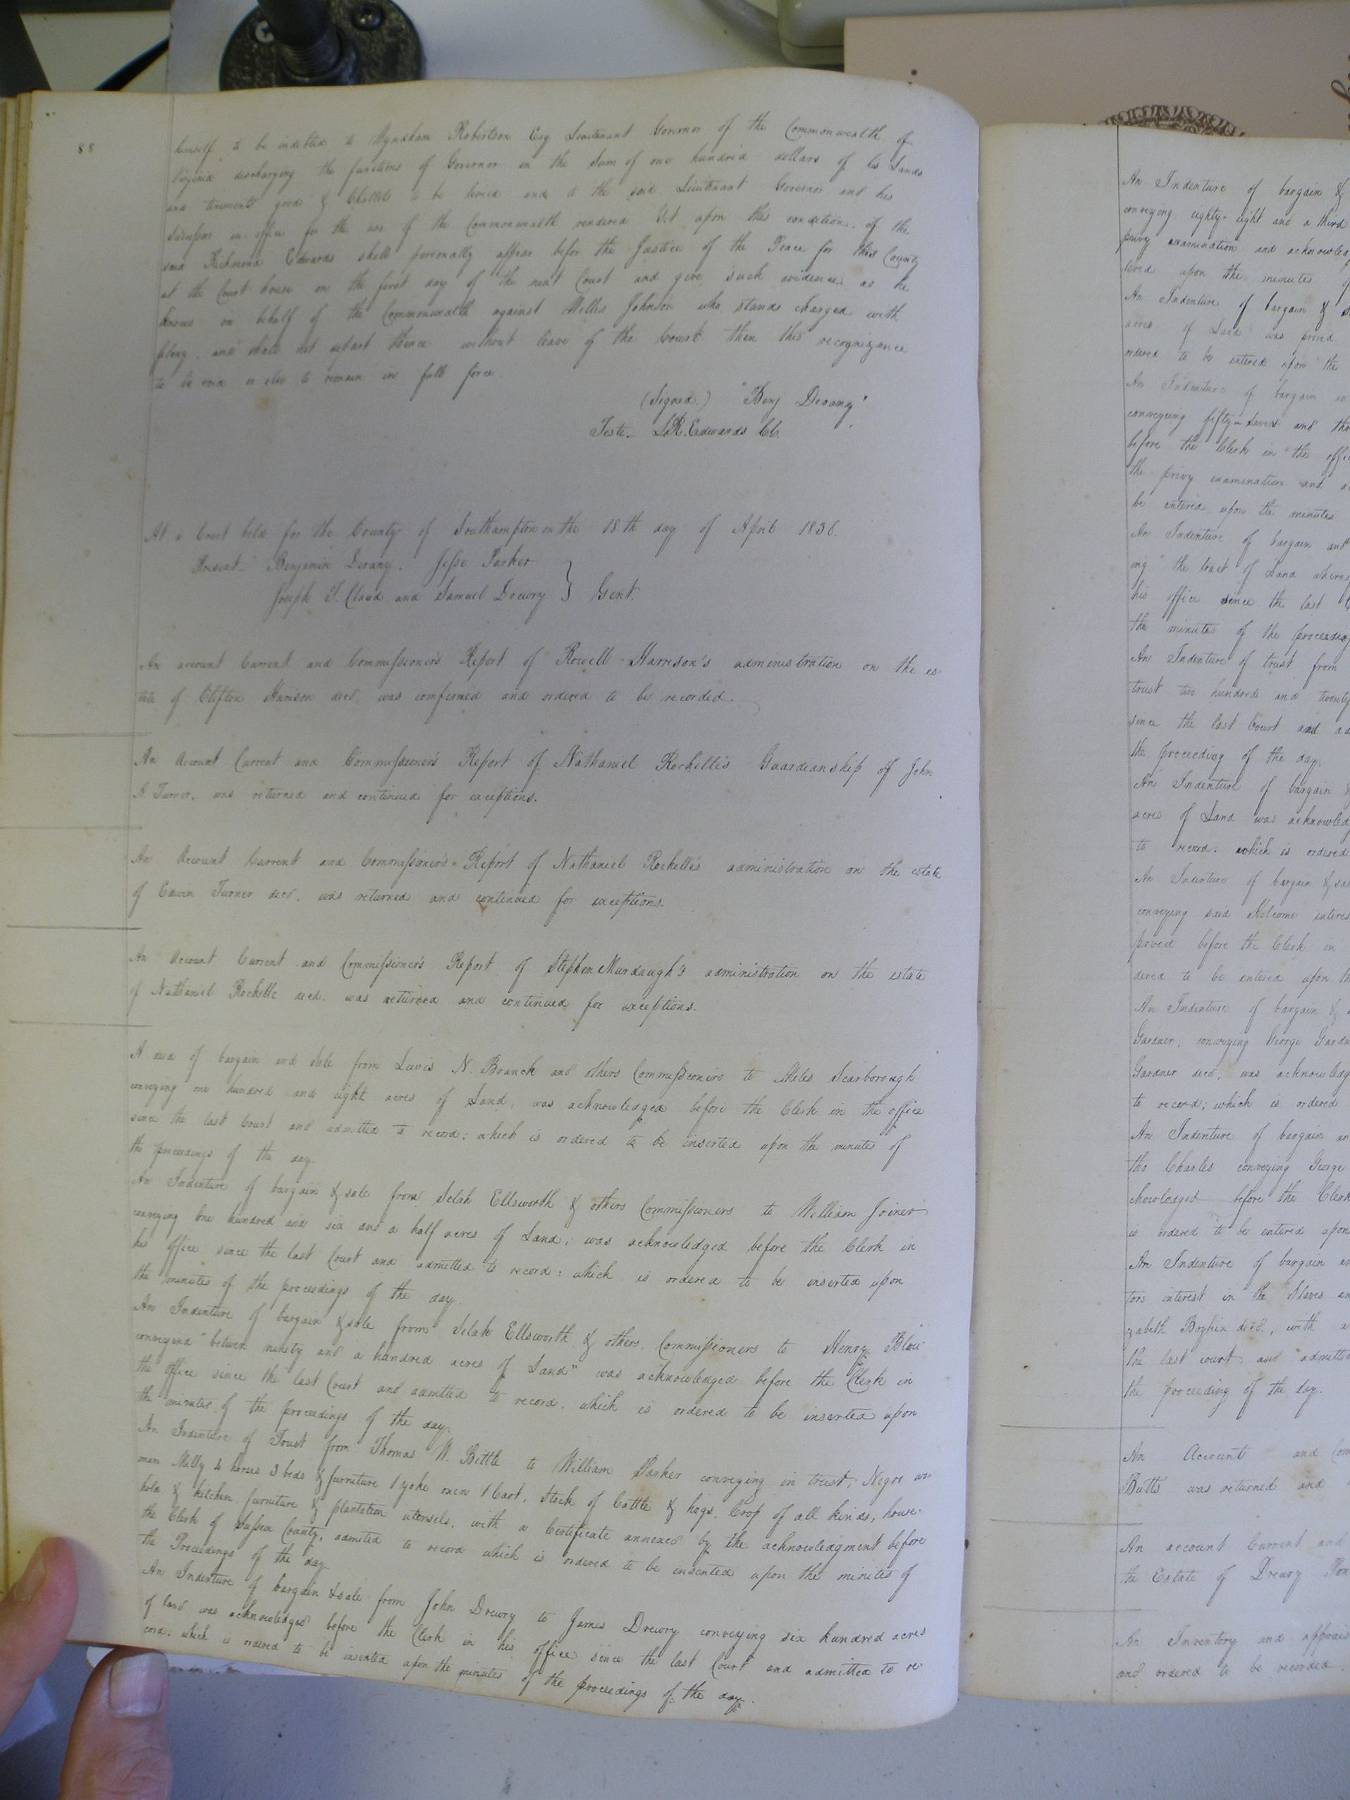 88
himself to be indebted to Wyndham Robertson Esq Lieutenant Governor of the Commonwealth of
Virginia discharging the functions of Governor in the Sum of one hundred dollars of his Lands
and tenements goods & Chattels to be levied and to the said Lieutenant Governor and his
Successors in office for the use of the Commonwealth rendered Yet upon this condition, of the
said Richmond Edwards shall personally appear before the Justice of the Peace for this County
at the Court house on the first day of the next Court and give such evidence as he
knows on behalf of the Commonwealth against Willis Johnson who stands charged with
felony and shall not depart thence without leave of the Court then this recognizance
to be void or else to remain in full force.
(Signed.) "Benj Devany"
Teste_ L.R. Edwards Cl.
At a Court held for the County of Southampton on the 18th day of April 1836.
Present_ Benjamin Devany. Jesse Parker
Joseph T. Claud and Samuel Drewry } Gent.
An account Current and Commissioner's Report of Rowell Harrison's administration on the es
tate of Clifton Harrison decd. was confirmed and ordered to be recorded.
An Account Current and Commissioner's Report of Nathaniel Rochelle's Guardianship of John
A Turner, was returned and continued for exceptions.
An Account Current and Commissioner's Report of Nathaniel Rochelle's administration on the estate
of Edwin Turner decd. was returned and continued for exceptions.
An Account Current and Commissioner's Report of Stephen Murdaugh's administration on the estate
of Nathaniel Rochelle decd. was returned and continued for exceptions.
A deed of bargain and sale from Lewis N. Branch and others Commissioners to Miles Scarborough
conveying one hundred and eight acres of Land, was acknowledged before the Clerk in the office
since the last Court and admitted to record; which is ordered to be inserted upon the minutes of
the proceedings of the day.
An Indenture of bargain & sale from Selah Ellsworth & others Commissioners to William Joiner
conveying One hundred and six and a half acres of Land; was acknowledged before the Clerk in
his office since the last Court and admitted to record; which is ordered to be inserted upon
the minutes of the proceedings of the day.
An Indenture of bargain & sale from Selah Ellsworth & others, Commissioners to Henry Blow
conveying "between ninety and a hundred acres of Land" was acknowledged before the Clerk in
the office since the last Court and admitted to record, which is ordered to be inserted upon
the minutes of the proceedings of the day.
An Indenture of Trust from Thomas W. Bittle to William Parker conveying in trust, Negro wo
man Milly 4 horses 3 beds & furniture 1 yoke oxen 1 Cart, Stock of Cattle & hogs, Crop of all kinds, house-
hold & kitchen furniture & plantation utensels, with a Certificate annexed by the acknowledgment before
the Clerk of Sussex County, admitted to record which is ordered to be inserted upon the minutes of
the Proceedings of the day
An Indenture of bargain & sale from John Drewry to James Drewry conveying six hundred acres
of land was acknowledged before the Clerk in his office since the last Court and admitted to re
cord; which is ordered to be inserted upon the minutes of the proceedings of the day.
An Indenture of bargain &
conveying eighty-eight and a third
privy examination and acknowled
tered upon the minutes of
An Indenture of bargain &
acres of Land was proved
ordered to be entered upon the
An Indenture of bargain
conveying fifty-seven and
before the Clerk in the offi
the privy examination and
be entered upon the minutes
An Indenture of bargain and
ing "the tract of Land where
his office since the last
the minutes of the proceeding
An Indenture of trust from
trust two hundred and twenty
since the last Court and
the proceeding of the day.
An Indenture of bargain
acres of Land was acknowled
to record; which is ordered
An Indenture of bargain & sa
conveying said interes
proved before the Clerk in
dered to be entered upon th
An Indenture of bargain &
Gardner, conveying George Gard
Gardner decd, was acknowledg
to record; which is ordered
An Indenture of bargain an
tha Charles conveying George
cknowledged before the Clerk
is ordered to be entered upon
An Indenture of bargain an
tors interest in the Slaves an
zabeth decd., with a
the last court and admitted
the proceeding of the day.
An Account and Com
Butts was returned and
An account Current and
the Estate of Drewry
An Inventory and apprais
and ordered to be recorded.